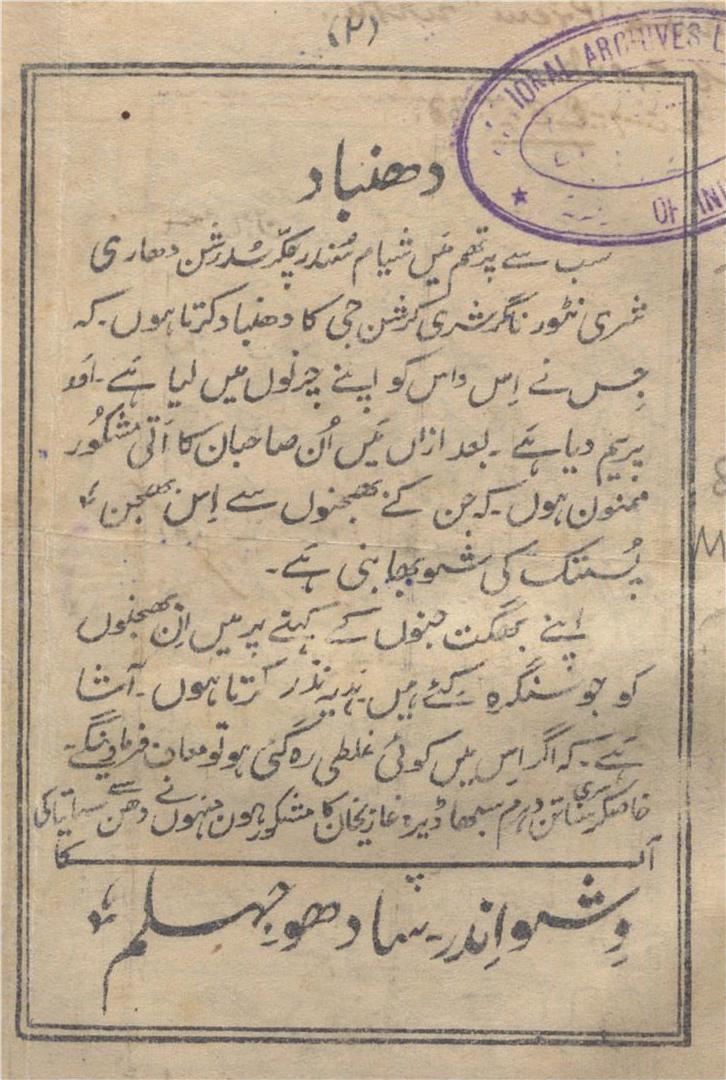 (۲)
IONAL ARCHIVES
OF IN
دھنباد
سب سے پرتھم میں شیام سُندر چکر سُدرشن دھاری
شری نٹور ناگر شری کرشن جی کا دھنباد کرتا ہوں۔ کہ
جِس نے اِس داس کو اپنے چرنوں میں لیا ہے۔ اَور
پریم دیا ہے۔ بعد ازاں میں اُن صاحبان کا اَتی مشکُور
ممنون ہوں۔ کہ جن کے بھجنوں سے اِس بھجن
پُستک کی شوبھا بنی ہے۔
اپنے بھگت جنوں کے کہنے پر میں اِن بھجنوں
کو جو سنگرہ کئے ہیں ہدیہ نذر کرتا ہوں۔ آشا
ہے۔ کہ اگر اِس میں کوئی غلطی رہ گئی ہو تو معاف فرماوینگے۔
خاصکر سری سناتن دہرم سبھا ڈیرہ غازیخان کا مشکور ہون جنہوں نے دھن سے سہایتا کی
آپ کا
وِشوانِدر۔ سادھو جہلم